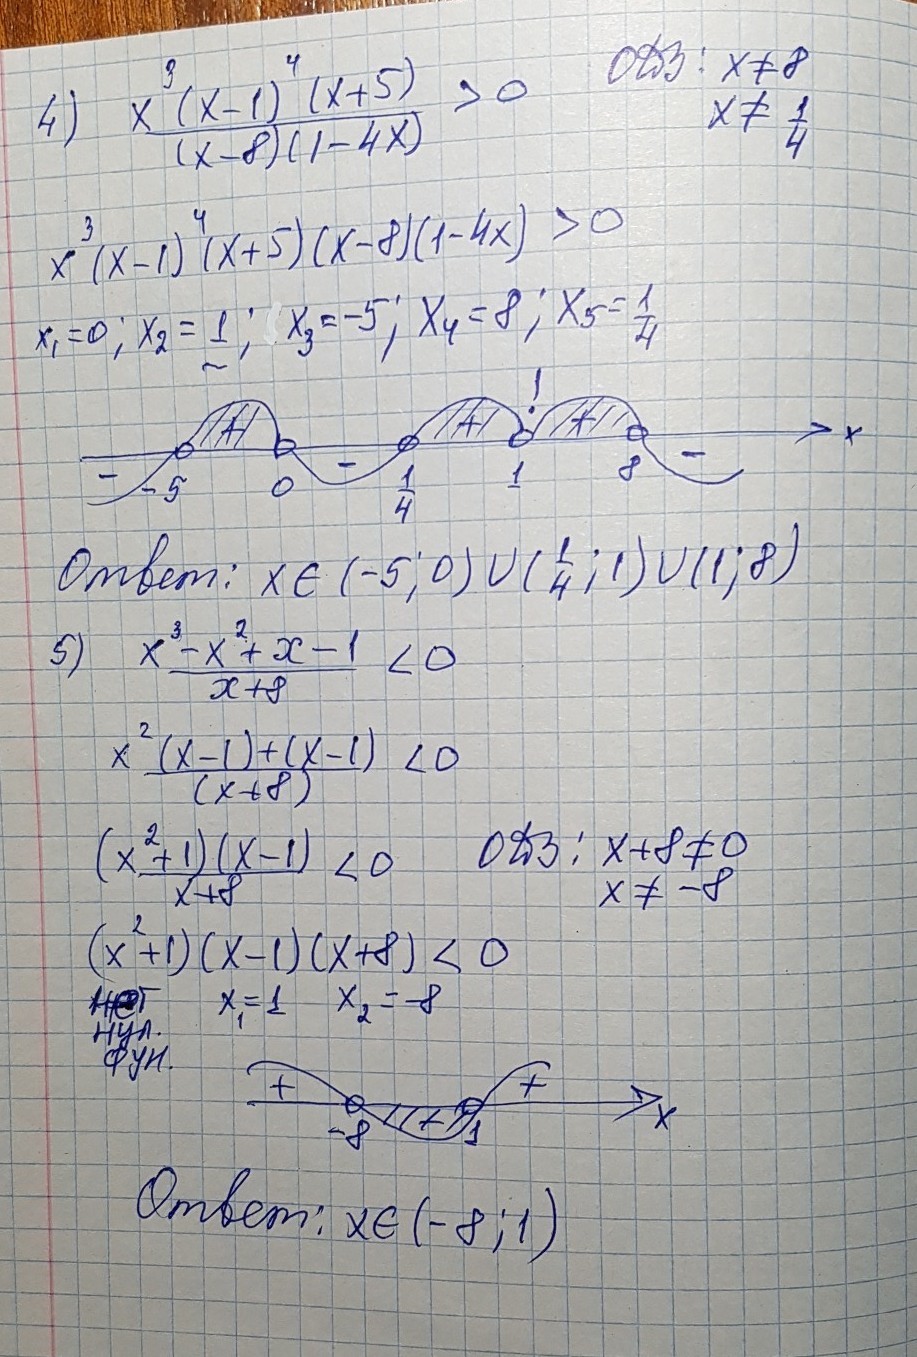 4) x³(x-1)⁴(x+5) / (x-8)(1-4x) > 0 ОДЗ: x≠8
x≠1/4
x³(x-1)⁴(x+5)(x-8)(1-4x) >0
x₁=0; x₂=1; x₃=-5; x₄=8; x₅=1/4
- -5 + 0 - 1/4 + 1 ! + 8 - x
Ответ: x∈(-5;0)∪(1/4;1)∪(1;8)
5) x³-x²+x-1 / x+8 <0
x²(x-1)+(x-1) / (x+8) <0
(x²+1)(x-1) / x+8 <0 ОДЗ: x+8≠0
x≠-8
(x²+1)(x-1)(x+8)<0
нет x₁=1 x₂=-8
нул.
фун.
+ -8 - 1 + x
Ответ: x∈(-8;1)